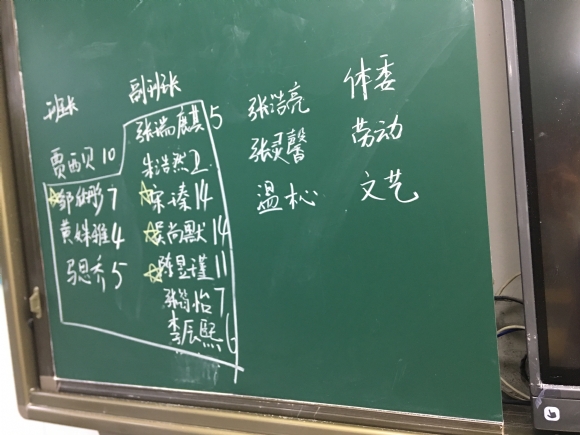 班长
贾西贝 10
邹欣彤 7
黄姝雅 4
马思乔 5
副班长
张瑞麒 5
朱浩然 2
宋溱 14
吴尚默 14
陈昱瑾 11
张筠怡 7
李辰熙 6
张浩亮 体委
张灵馨 劳动
温松 文艺